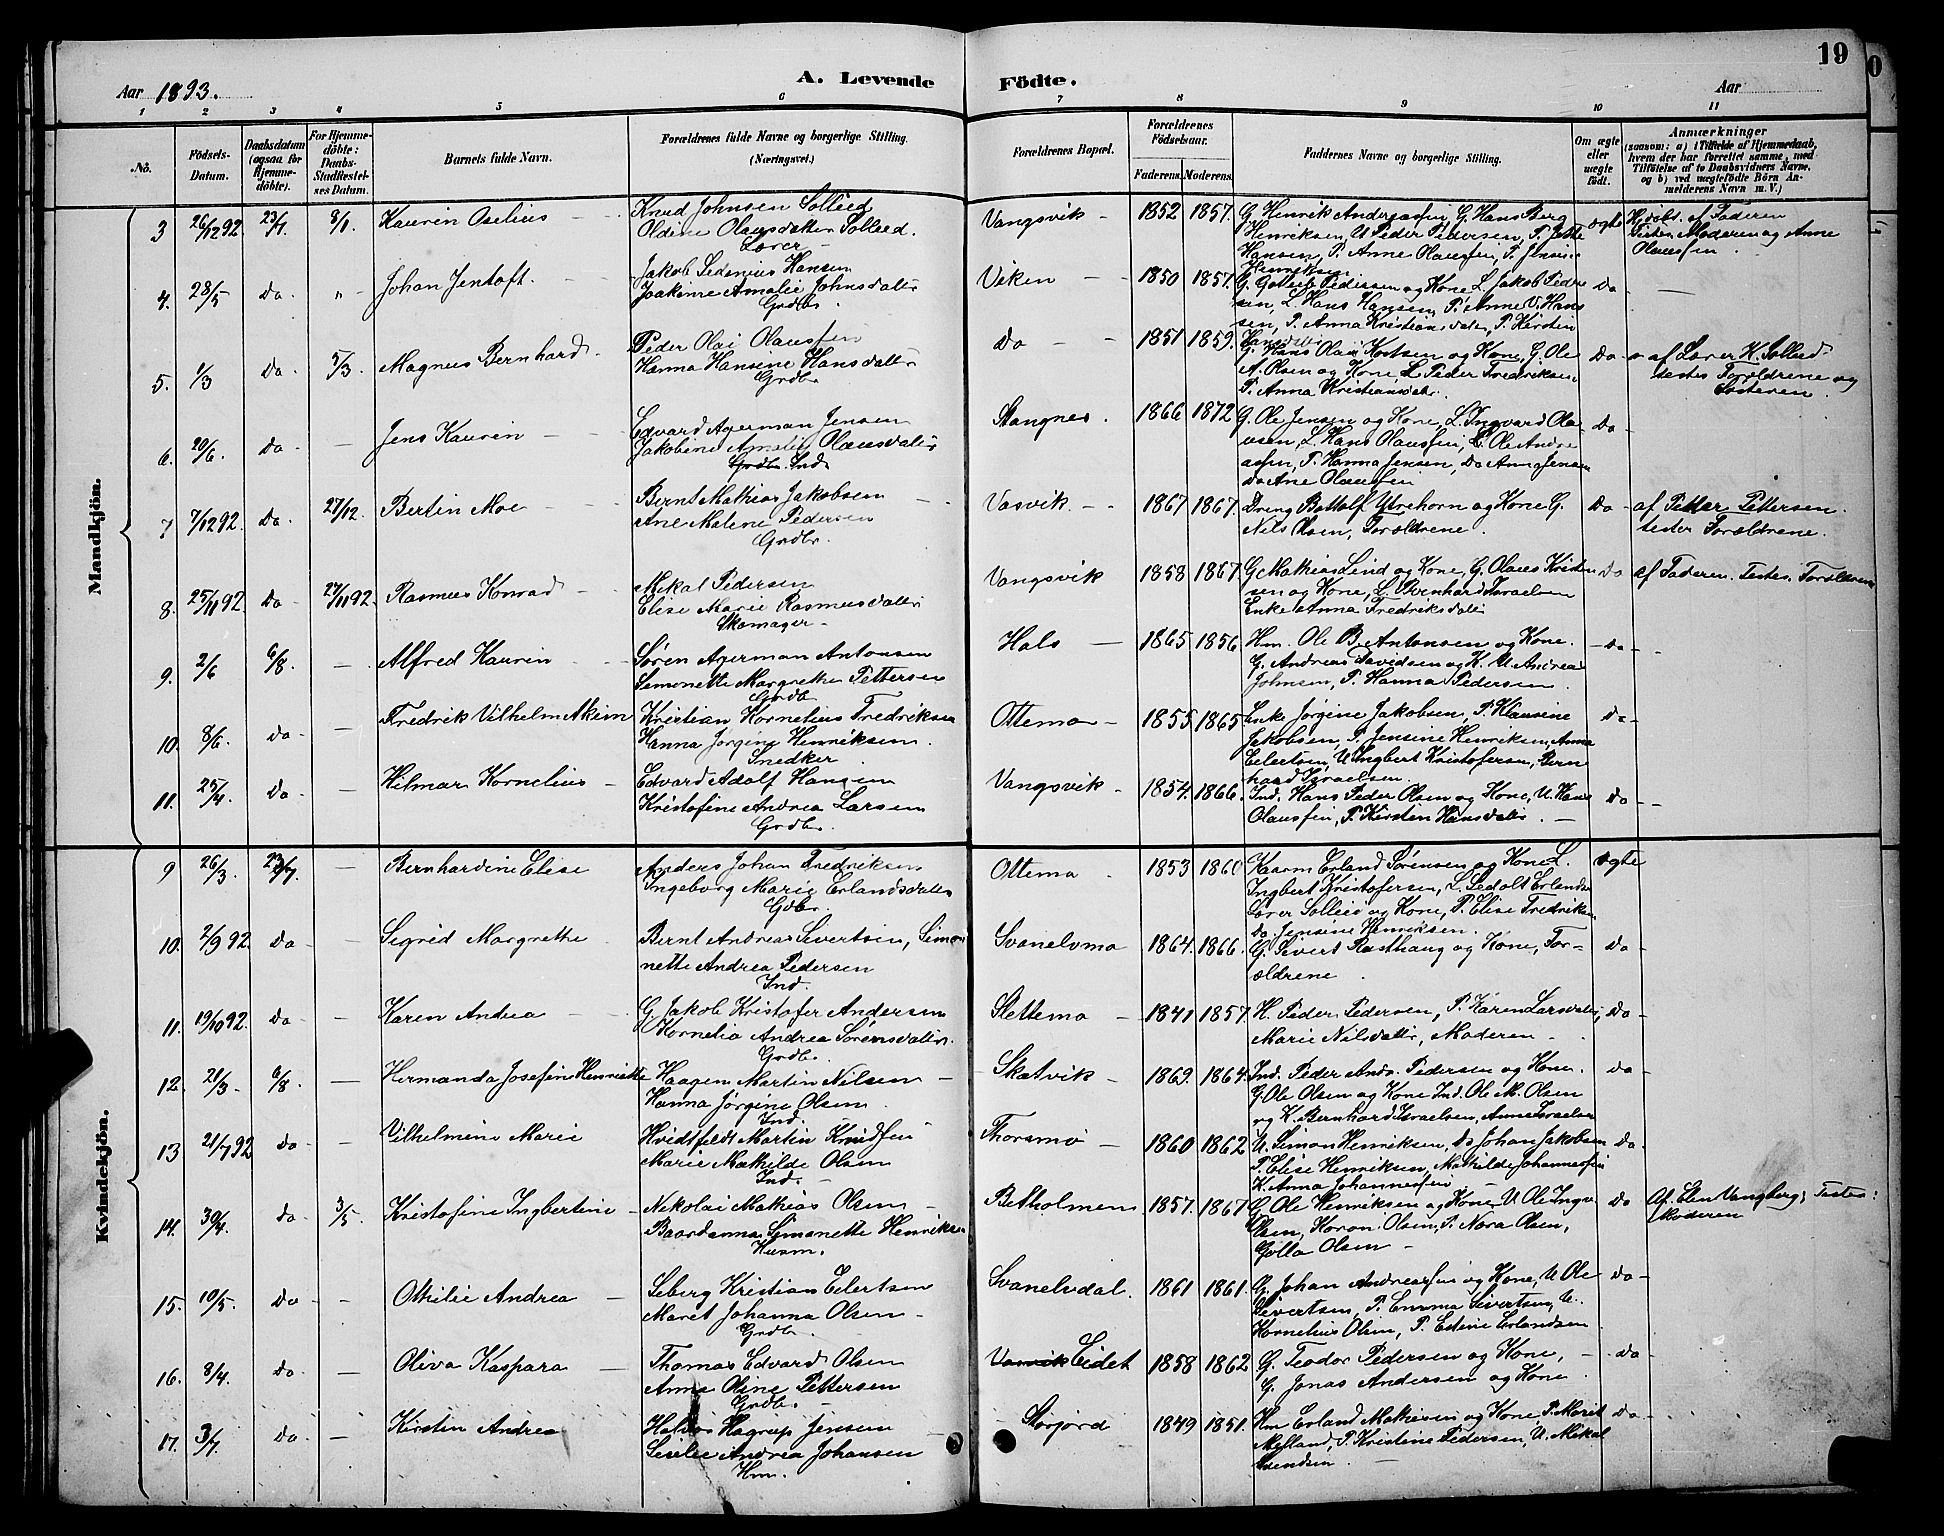 Aar 1893.
A. Levende Födte.
Aar
19
1 2 3 4 5 6 7 8 9 10 11
No.
Födsels-Datum.
Daabsdatum (ogsaa for Hjemmedöbte).
For Hjemmedöbte: Daabs-Stadfæstelses Datum.
Barnets fulde Navn.
Forældrenes fulde Navne og borgerlige Stilling. (Næringsvei.)
Forældrenes Bopæl.
Forældrenes Födselsaar.
Faderens. Moderens.
Faddernes Navne og borgerlige Stilling.
Om ægte eller uægte födt.
Anmærkninger (saasom: a) i Tilfælde af Hjemmedaab, hvem der har forrettet samme, med Tilföielse af to Daabsvidners Navne, og b) ved uægtefödte Börn Anmelderens Navn m. V.)
Mandkjön.
3 26/12 92 23/7 8/1 Kaurin Oselius
Knud Johnsen Solleid
Oldine Olausdatter Solleid.
Lærer
Vangsvik 1852 1857.
G. Henrik Andreassen, G. Hans Berg
Henriksen, U. Peder Pedersen, P. Jette
Hansen, P. Anne Olaussen, P. Jensine
Henriksen
ægte
Hjdøbt. af Faderen
Testes Moderen og Anne
Olaussen
4. 28/5 do. " Johan Jentoft.
Jakob Sedenius Hansen
Joakime Amalie Johnsdatter
Grdbr.
Viken 1850 1857.
G. Gotlieb Pedersen og Kone L. Jakob Peder
sen, L. Hans Hansen, P. Anne V. Han
sen, P. Anna Kristiansdatter, P. Kirsten
Hansdatter
Do
5. 1/3 Do. 5/3. Magnus Bernhard
Peder Olai Olaussen
Hanna Hansine Hansdatter
Grdbr
Do 1851 1859.
G. Hans Olai Kostsen og Kone, G. Ole
A. Olsen og Kone L. Peder Fredriksen
P. Anna Kristiansdatr.
Do
af Lærer K. Solleid
testes Forældrene og
Søsteren.
6. 20/6. Do. Jens Kaurin
Edvard Agerman Jensen
Jakobine Amalie Olausdatter
Grdbr. Ind.
Stangnes. 1866 1872
G. Ole Jensen og Kone, L. Ingvard Ola
usen, L. Hans Olaussen, L. Ole Andre
assen, P. Hanna Jensen, Do Anna Jensen
do Ane Olaussen
Do
7 7/12 92. Do. 27/12. Bertin Moe
Bernt Mathias Jakobsen
Ane Malene Pedersen
Grdbr.
Vasvik 1867 1867.
Dreng Bottolf Ytrehorn og Kone G.
Nils Olsen, Forældrene.
Do
af Petter Pettersen.
testes Forældrene.
8. 25/11 92 Do 27/11 92. Rasmus Konrad
Mikal Pedersen
Elise Marie Rasmusdatter
Skomager
Vangsvik 1858 1867
G. Mathias Lind og Kone, G. Olaus Kristen
sen og Kone, L. Bernhard Israelsen
Enke Anna Fredriksdatter
Do
af Faderen. Testes Forældrene
9. 2/6 6/8. Alfred Kaurin
Søren Agerman Antonsen
Simonette Margrethe Pettersen
Grdbr
Hals 1865 1856
Hm. Ole B. Antonsen og Kone.
G. Andreas Davidsen og K. U. Andreas
Johnsen, P. Hanna Pedersen
Do
10. 8/6. do. Fredrik Vilhelm Akim
Kristian Kornelius Fredriksen
Hanna Jørgine Henriksen.
Snedker
Ottemo 1855. 1865
Enke Jørgine Jakobsen, P. Klausine
Jakobsen, P. Jensine Henriksen, Anna
Eilertsen, U. Ingbert Kristofersen, Bern
hard Israelsen.
Do
11. 25/4. Do Hilmar Kornelius
Edvard Adolf Hansen
Kristofine Andrea Larsen
Grdbr.
Vangsvik 1854. 1866.
Ind. Hans Peder Olsen og Kone, U. Hans
Olaussen, P. Kirsten Hansdatter.
Do
Kvindekjön.
9 26/3. 23/7. Bernhardine Elise
Anders Johan Fredriksen
Ingeborg Marie Erlandsdatter
Gdbr.
Ottemo 1853 1860
Kaarm Erland Sørensen og Kone L.
Ingbert Kristofersen, L. Sedolf Erlands
Lærer Solleid og Kone, P. Elise Fredriksen
Do. Jensine Henriksen.
ægte
10. 2/9 92 Do Sigrid Margrethe
Bernt Andreas Sivertsen, Simo
nette Andrea Pedersen
Ind.
Svanelvmo 1864. 1866.
G. Sivert Rasthaug og Kone, For=
ældrene
Do
11. 19/10 92. do Karen Andrea
G. Jakob Kristofer Andersen
Kornelia Andrea Sørensdatter
Grdbr.
Slettemo 1841 1857.
H. Peder Pedersen, P. Karen Larsdatter,
Marie Nilsdatter, Moderen
Do
12. 21/3. 6/8. Hermanda Josefine Henriette
Haagen Martin Nilsen
Hanna Jørgine Olsen.
Ind.
Skatvik 1869. 1864.
Ind. Peder Andr. Pedersen og Kone.
G. Ole Olsen og Kone Ind. Ole M. Olsen
og K. Bernhard Israelsen, Anne Israelsen
do
13 21/7 92 do Vilhelmine Marie
Hvidtfeldt Martin Knudsen
Marie Mathilde Olsen
Ind.
Thorsmo 1860 1862
U. Simon Henriksen, do Johan Jakobsen
P. Elise Henriksen, Mathilde Johannessen
K. Anna Johannessen
Do
14. 30/4. do 3/5. Kristofine Ingbertine
Nikolai Mathias Olsen
Baardanna Simonette Henriksen
Husm.
Betholmen 1857. 1867
G. Ole Henriksen og Kone U. Ole Ingv.
Olsen, Horon Olsen, P. Nora Olsen,
Golla Olsen
Do
Af Elen Vangberg; Testes:
Moderen
15. 10/5. Do Othilie Andrea
Seberg Kristian Eilertsen
Maret Johanna Olsen
Grdbr.
Svanelvdal. 1861 1861.
G. Johan Andreassen og Kone, U. Ole
Sivertsen, P. Emma Sivertsen, U.
Kornelius Olsen, P. Edine Erlandsen
do
16. 8/4. do Oliva Kaspara
Thomas Edvard Olsen
Anne Oline Pettersen
Grdbr.
Vasvik Eidet 1858 1862
G. Teodor Pedersen og Kone,
G. Jonas Andersen og Kone
do
17. 3/7. Do Kirstin Andrea
Haldos Hagrup Jensen
Cecilie Andrea Johansen
Hm.
Sørfjord 1849 1851.
Hm Erland Mathisen og Kone, P. Marit
Myland, P. Kristine Pedersen, U. Mikal
Svendsen
Do